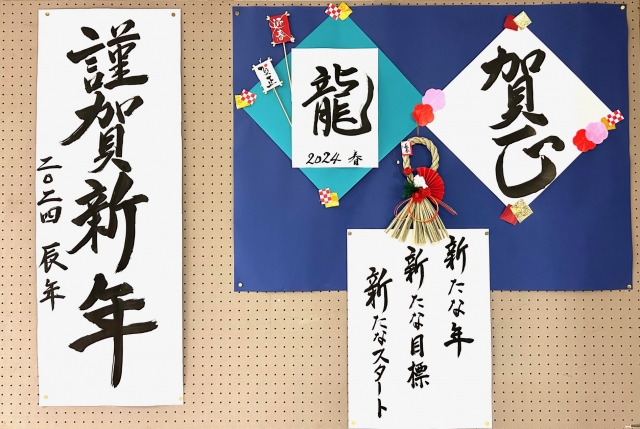 謹賀新年
二〇二四 辰年
迎春
賀正
龍
2024 春
賀正
新たな年
新たな目標
新たなスタート